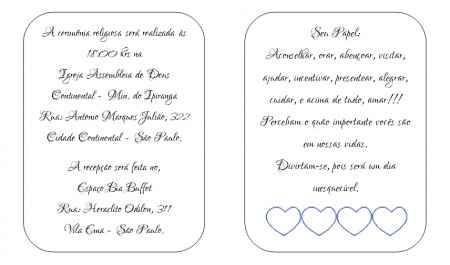 A cerimônia religiosa será realizada às
18:00 hrs na
Igreja Assembleia de Deus
Continental - Min. do Ipiranga
Rua: Antonio Marques Julião, 322
Cidade Continental - São Paulo.
A recepção será feita no,
Espaço Bia Buffet
Rua: Heraclito Odilon, 311
Vila Ema - São Paulo.
Seu Papel:
Aconselhar, orar, abençoar, visitar,
ajudar, incentivar, presentear, alegrar,
cuidar, e acima de tudo, amar!!!
Percebam o quão importante vocês são
em nossas vidas.
Divirtam-se, pois será um dia
inesquecível.